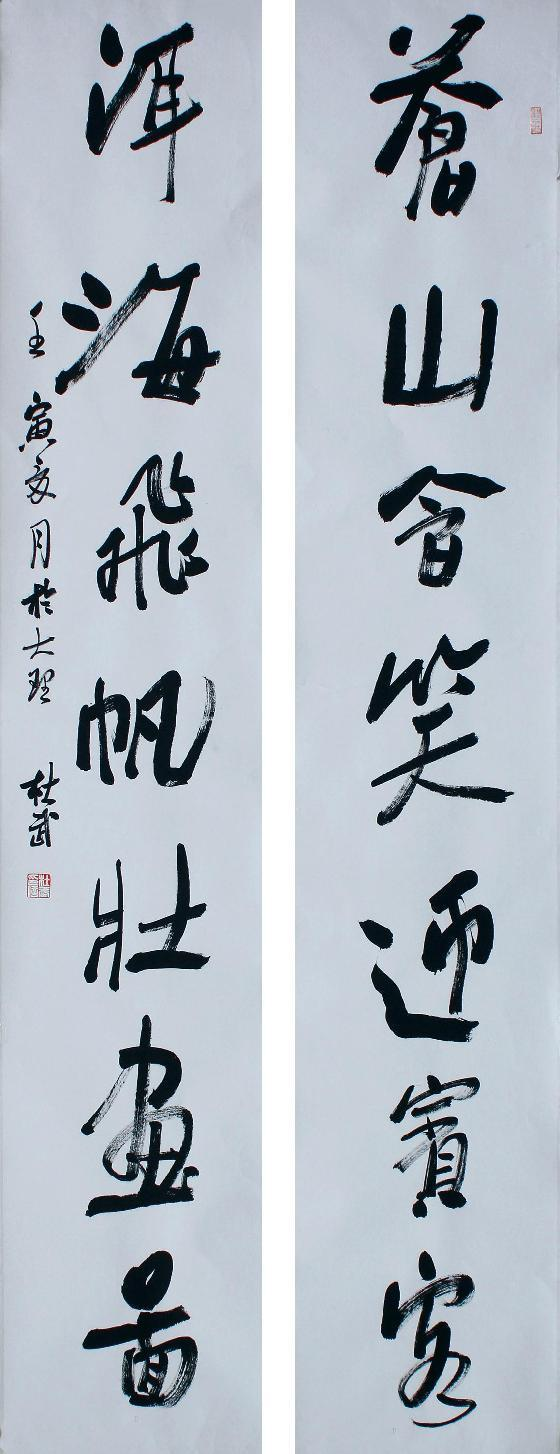 蒼山含笑迎賓客
洱海飛帆壯畫圖
壬寅亥月於大理 杜武